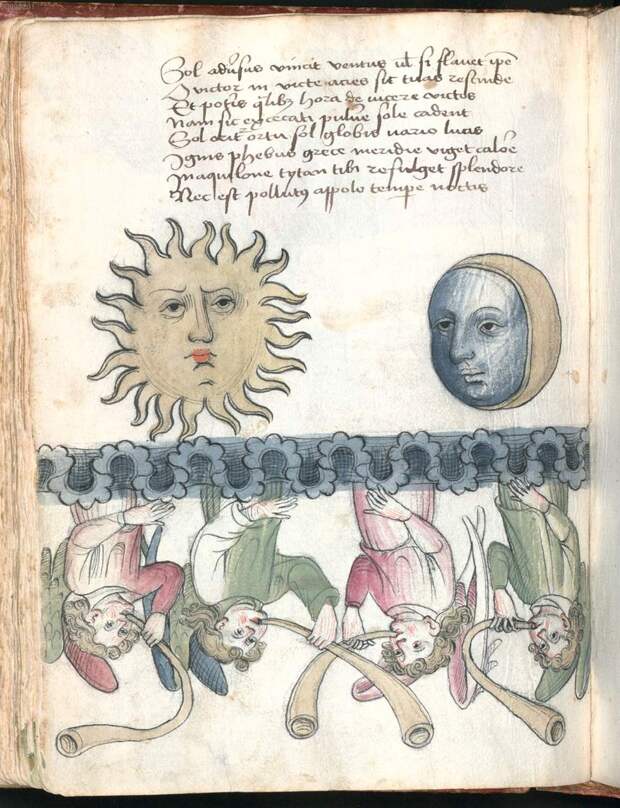 Sol adusus vincit ventus ul si flauet ipe
Quictor in victe acies sic tuas rescinde
Et potis qlibz hora deuicere victos
Nam sic excecati puluere sole cadent
Sol orit ortu sol globis uario lucis
Ignis phebus grece meridie viget calore
Maquilone tytan tibi refulget splendore
Nec est pollutus appolo tempe noctis